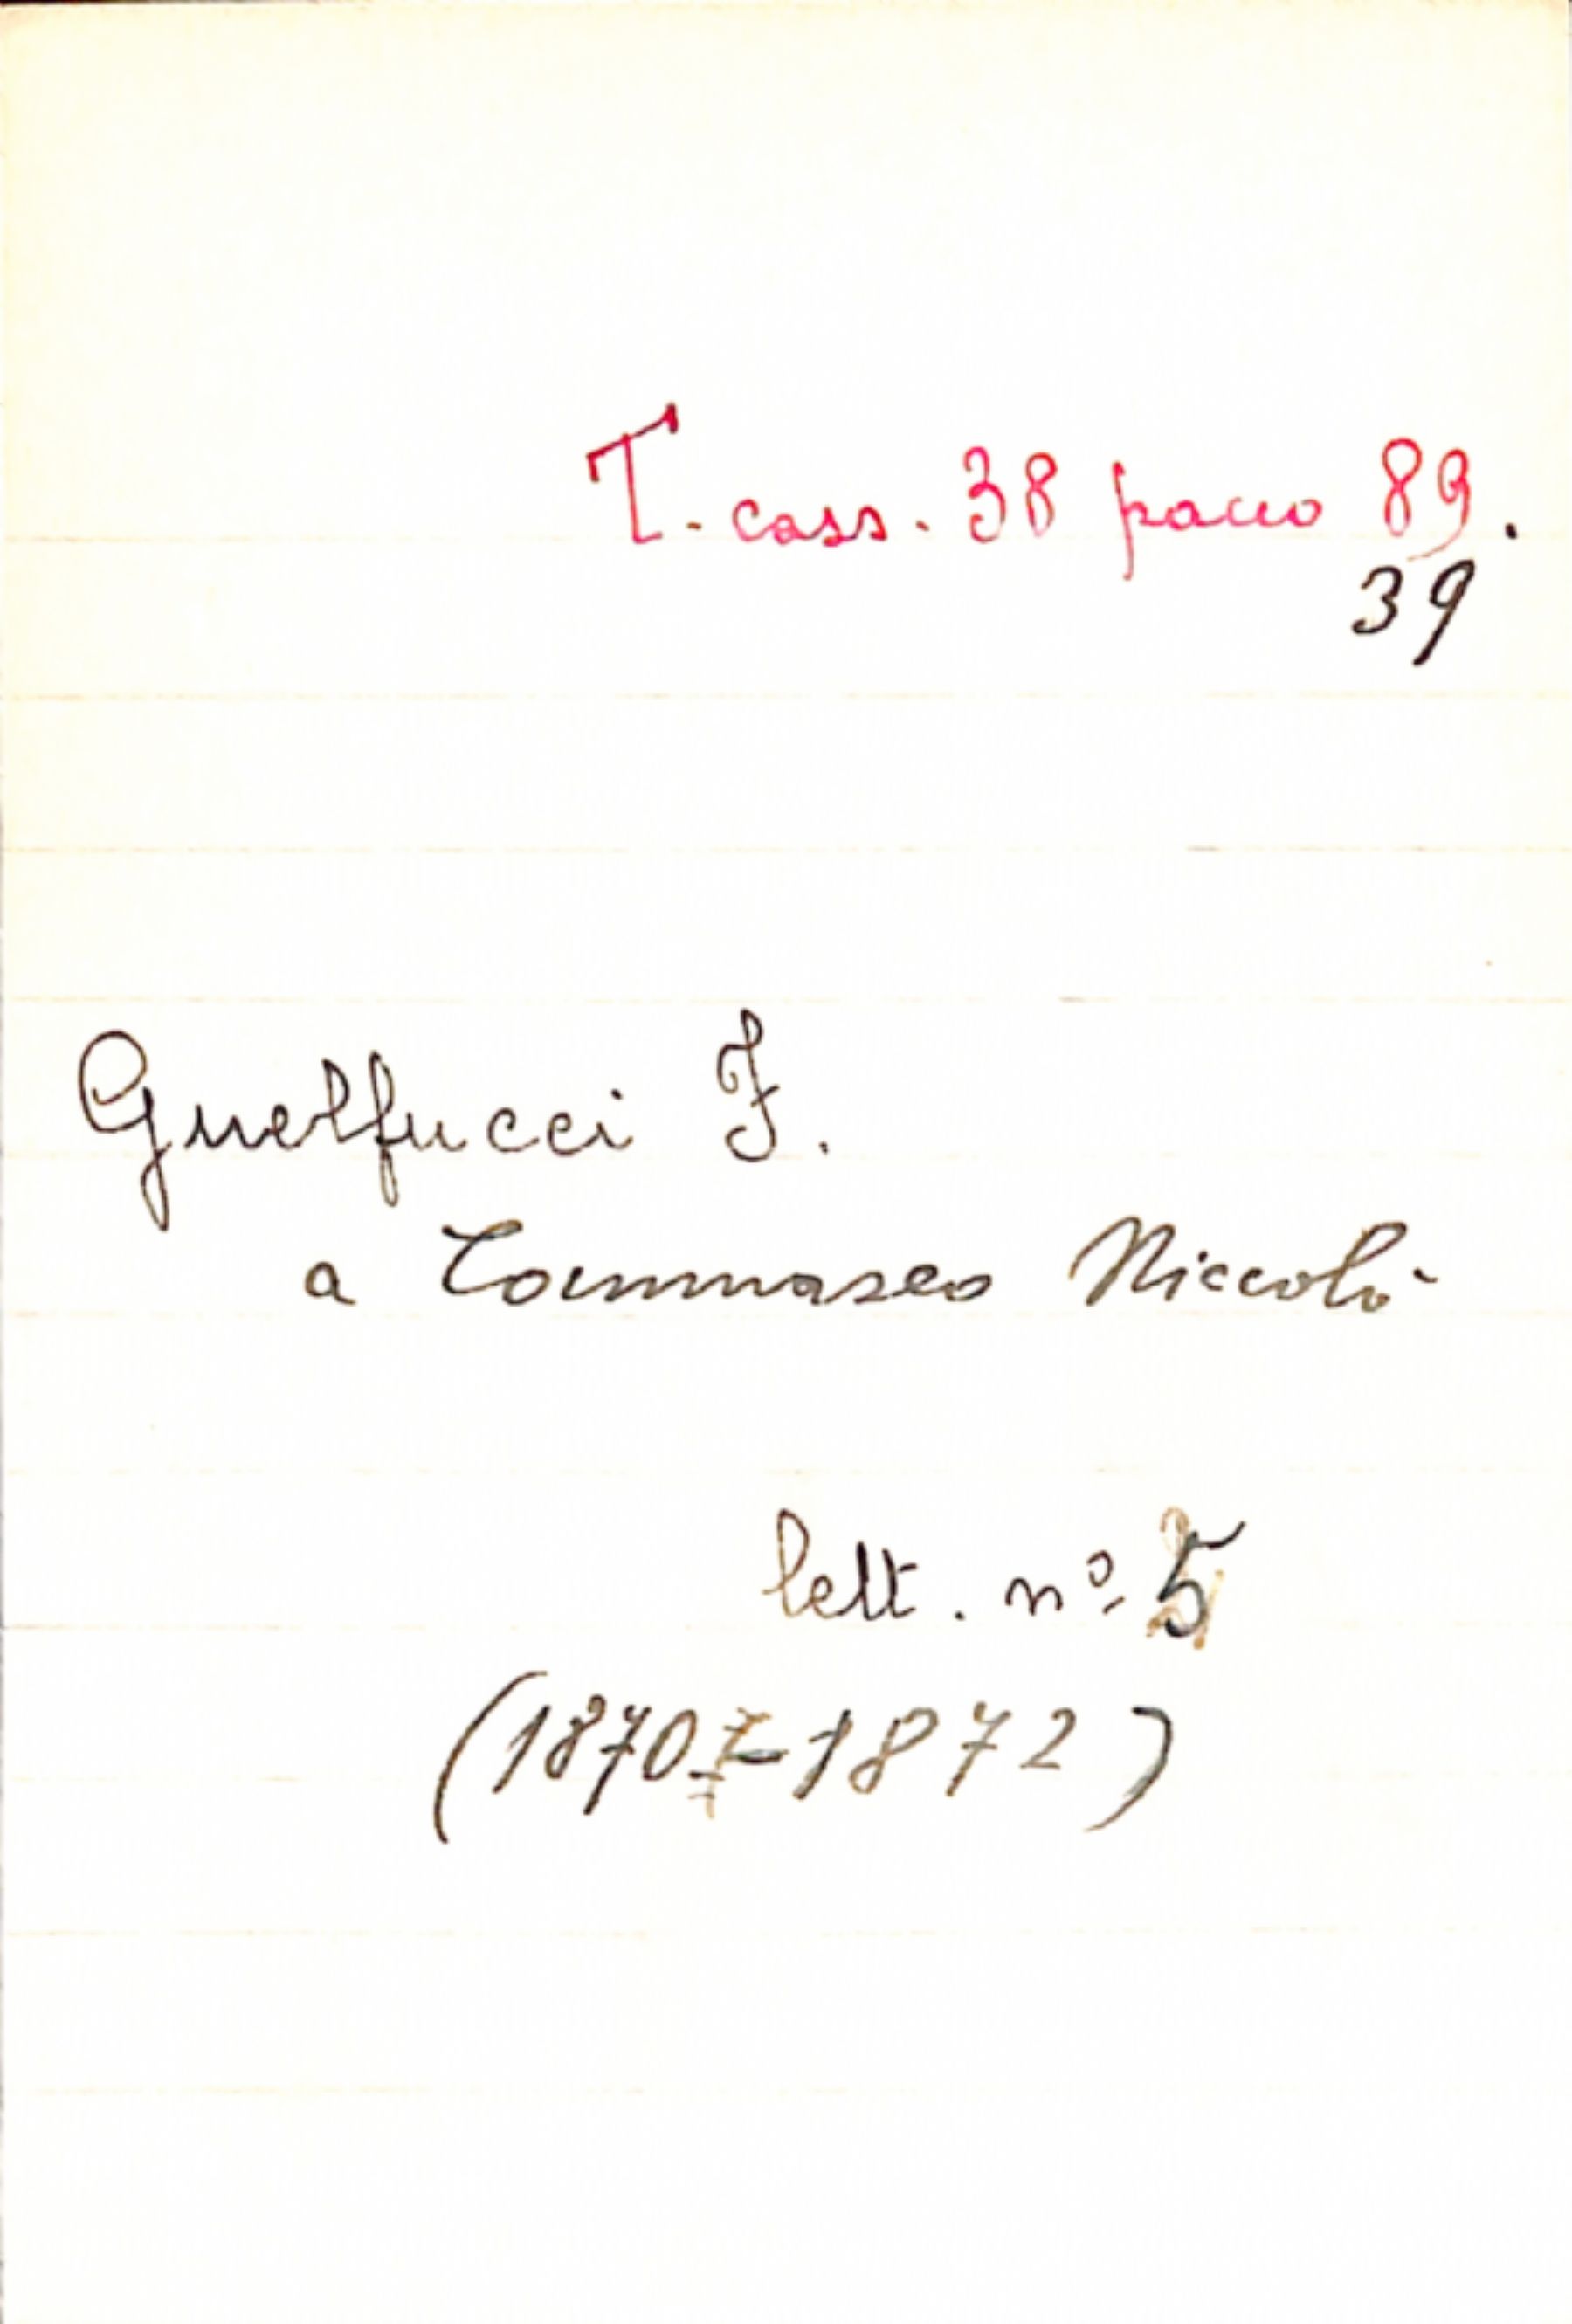 T. cass. 38 pacco 89.
39
Guelfucci F.
a Tommaseo Niccolò
lett. nº 5
(1870-1872)